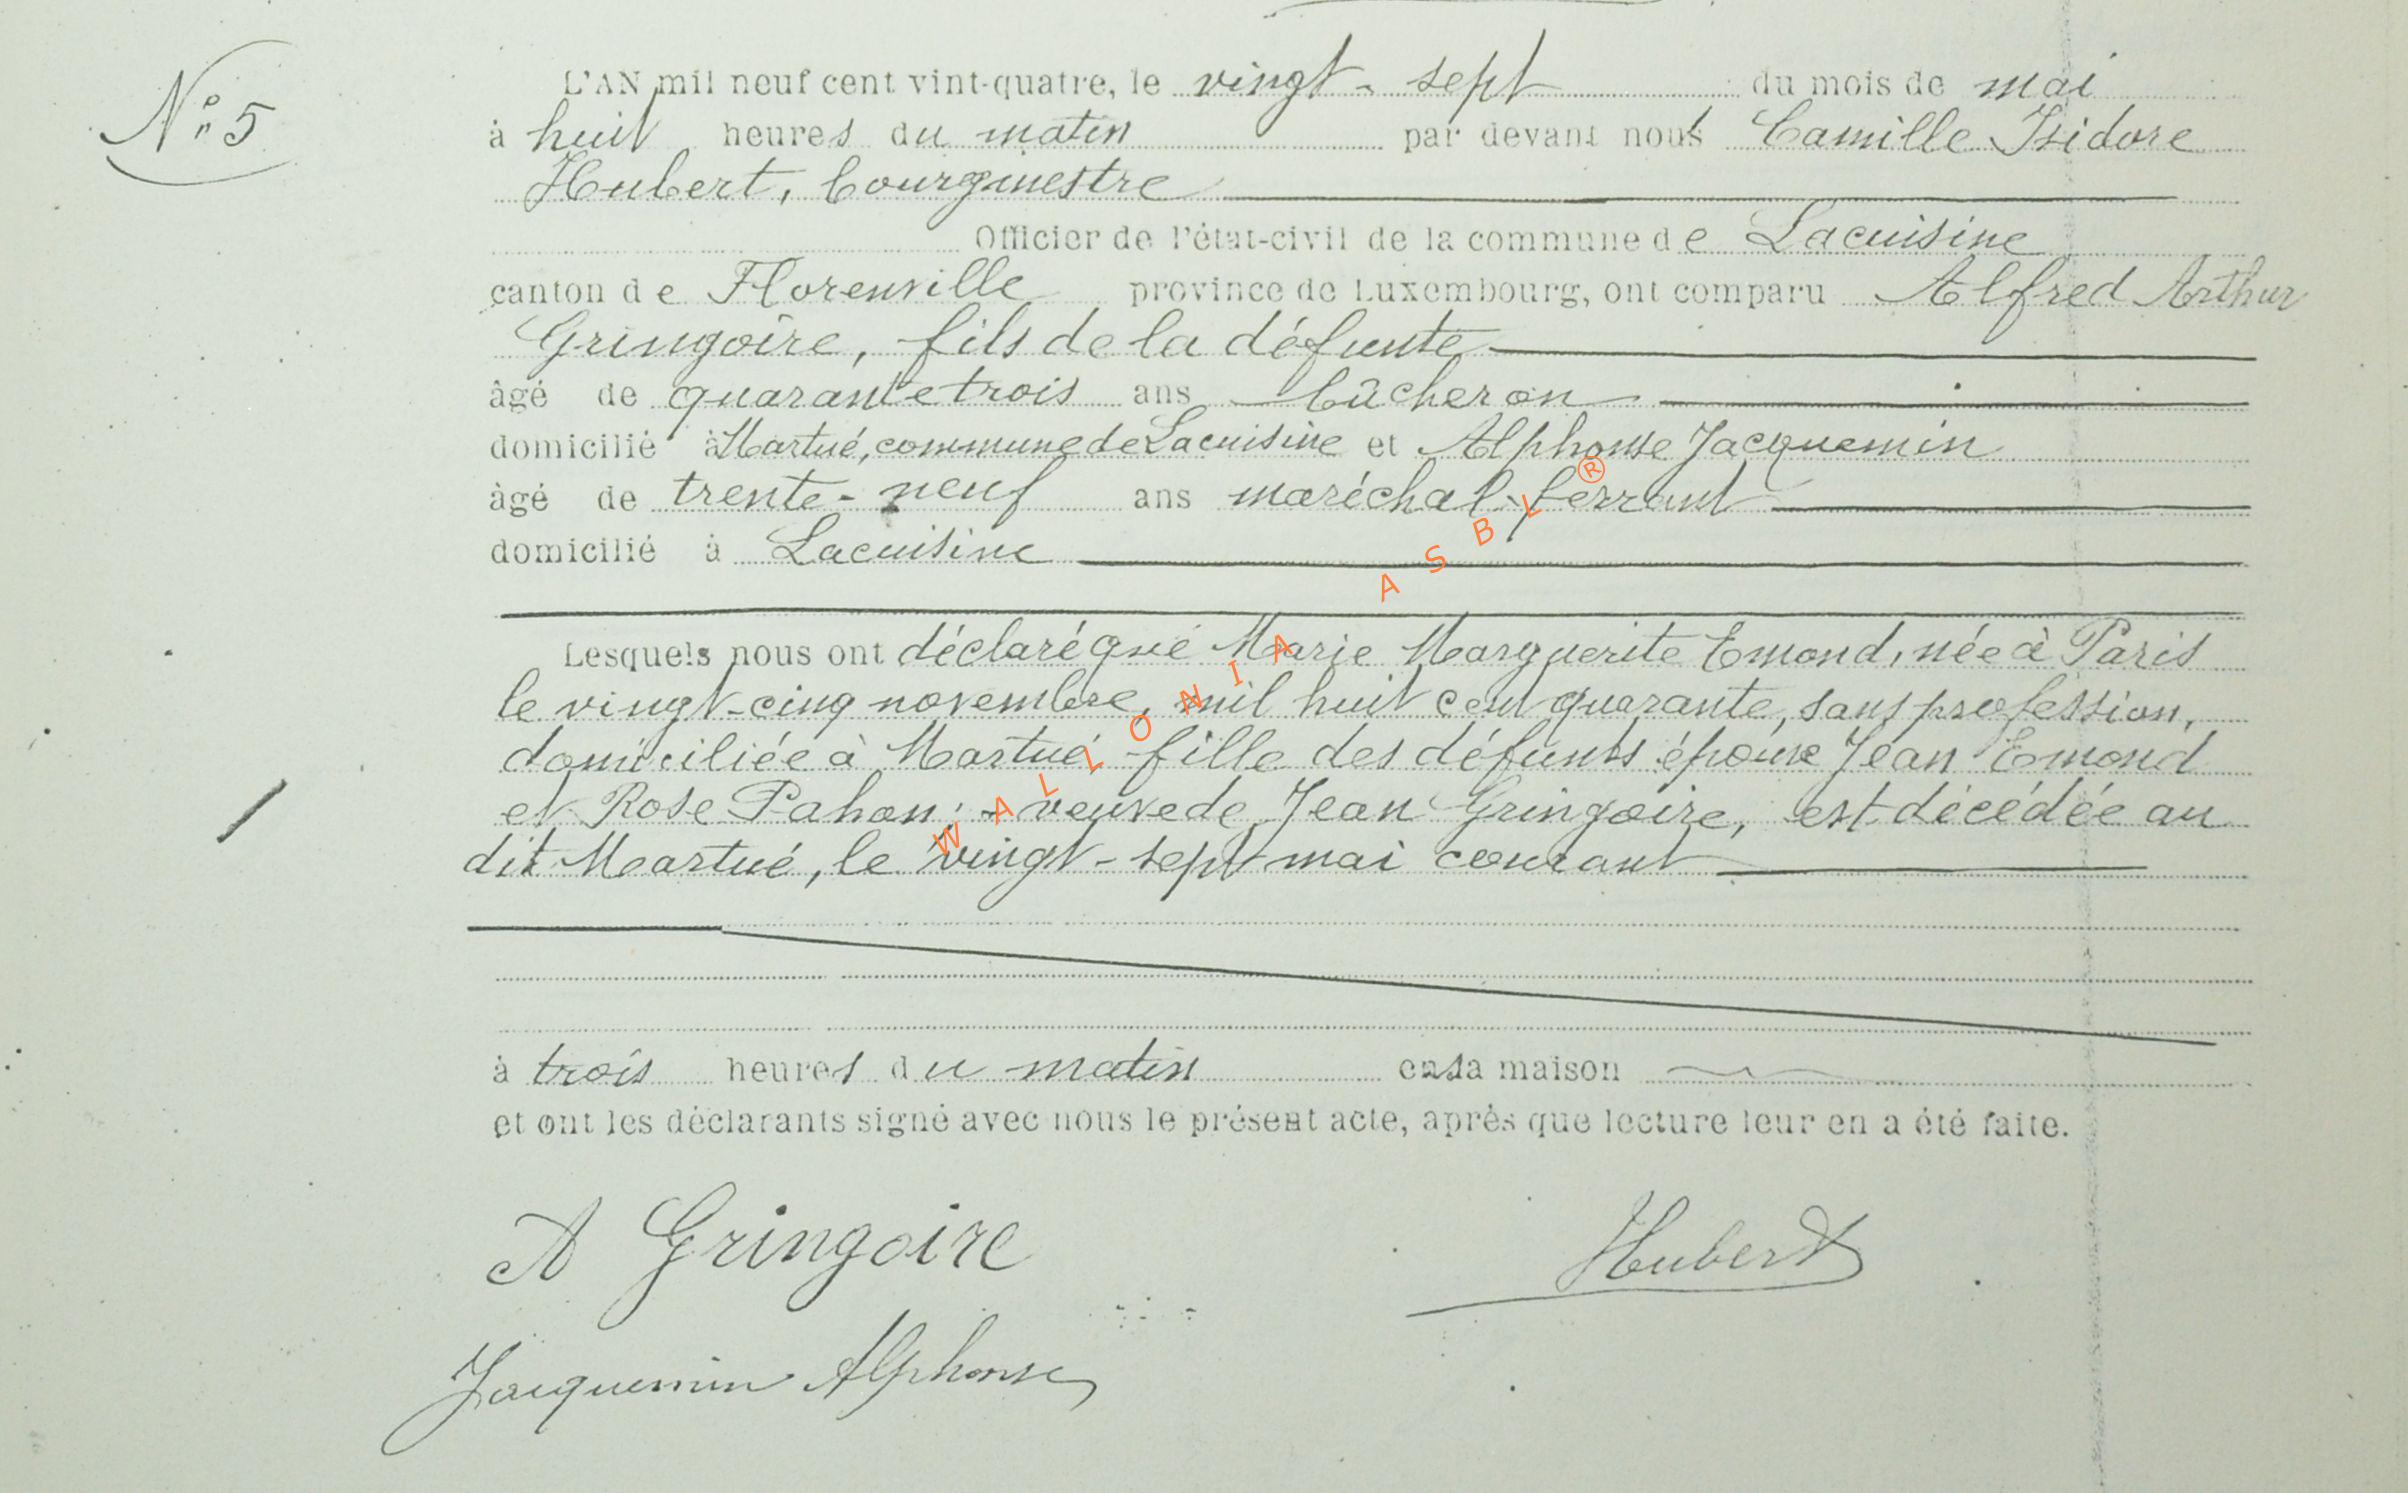 N° 5
L'AN mil neuf cent vint-quatre, le vingt-sept du mois de mai
à huit heures du matin par devant nous Camille Isidore
Hubert, bourgmestre
Officier de l'état-civil de la commune de Lacuisine
canton de Florenville province de Luxembourg, ont comparu Alfred Arthur
Gringoire, fils de la défunte
âgé de quarante trois ans bûcheron
domicilié à Martué, commune de Lacuisine et Alphonse Jacquemin
âgé de trente-neuf ans maréchal-ferrant
domicilié à Lacuisine
Lesquels nous ont déclaré que Marie Marguerite Emond, née à Paris
le vingt-cinq novembre, mil huit cent quarante, sans profession,
domiciliée à Martué fille des défunts époux Jean Emond
et Rose Pahon, veuve de Jean Gringoire, est décédée au
dit Martué, le vingt-sept mai courant
à trois heures du matin en sa maison
et ont les déclarants signé avec nous le présent acte, après que lecture leur en a été faite.
A Gringoire
Hubert
Jacquemin Alphonse
WALLONIA ASBL ®